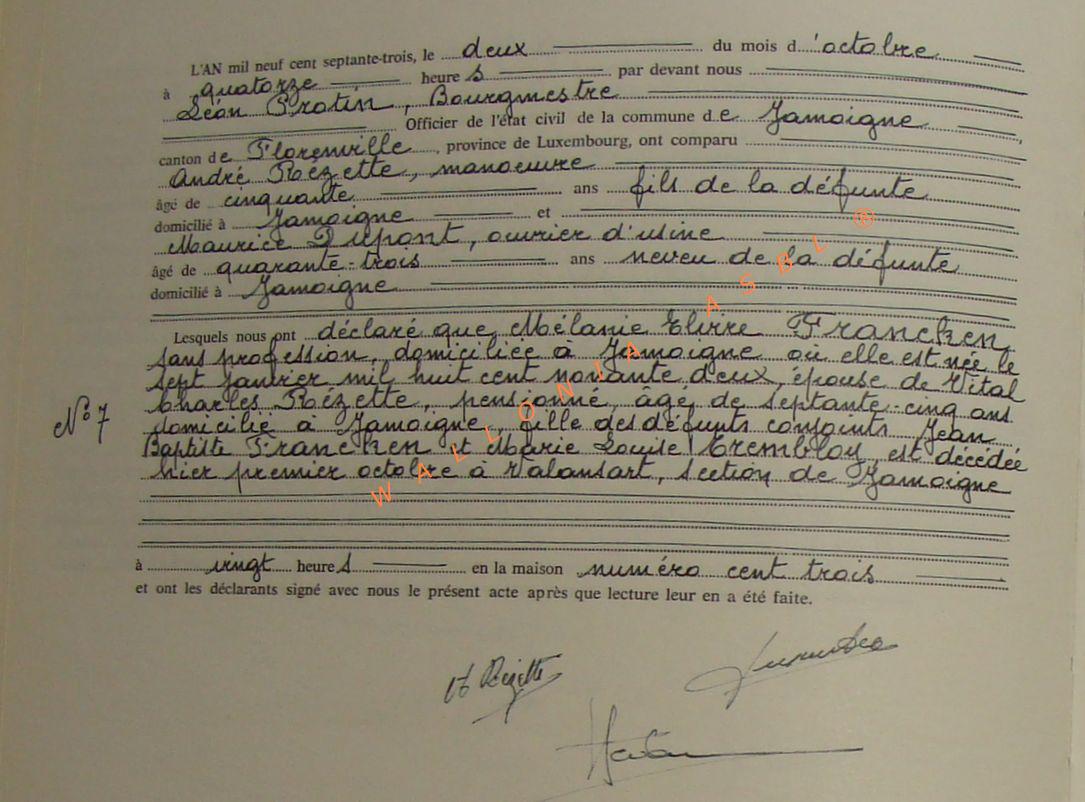 L'AN mil neuf cent septante-trois, le deux du mois d'octobre
à quatorze heures par devant nous
Léon Protin, Bourgmestre
Officier de l'état civil de la commune de Jamoigne
canton de Florenville, province de Luxembourg, ont comparu
André Rézette, manoeuvre
âgé de cinquante ans fils de la défunte
domicilié à Jamoigne et
Maurice Dupont, ouvrier d'usine
âgé de quarante-trois ans neveu de la défunte
domicilié à Jamoigne
Lesquels nous ont déclaré que Mélanie Francken,
sans profession, domiciliée à Jamoigne où elle est née le
sept janvier mil huit cent nonante deux, épouse de Vital
Charles Rézette, pensionné, âgé de septante-cinq ans
domicilié à Jamoigne, fille des défunts conjoints Jean
N° 7
Baptiste Francken et Marie Louise Trembloy, est décédée
hier premier octobre à Valansart, section de Jamoigne
à vingt heures en la maison numéro cent trois
et ont les déclarants signé avec nous le présent acte après que lecture leur en a été faite.
Rézette
WALLONIA ASBL ®